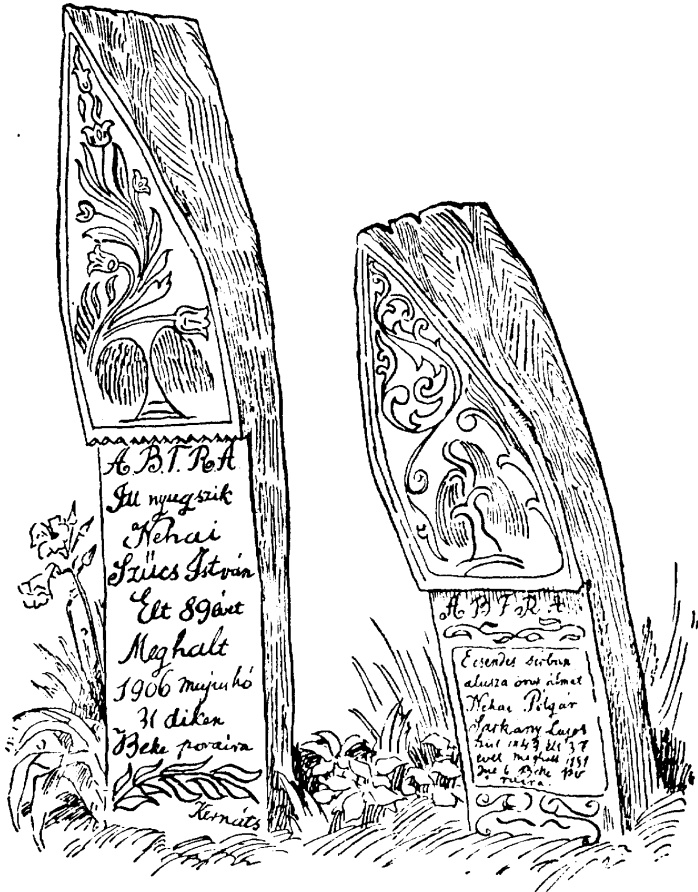 A.B.F.R.A
Itt nyugszik
Néhai
Szücs István
Élt 89 évet
Meghalt
1906 május hó
31 diken
Béke poraira
Kernáts
A B F R A
E csendes sirban
alusza örök álmat
Néhai Polgár
Sárkány Lajos
élt 37
évet meghalt
Béke po
raira